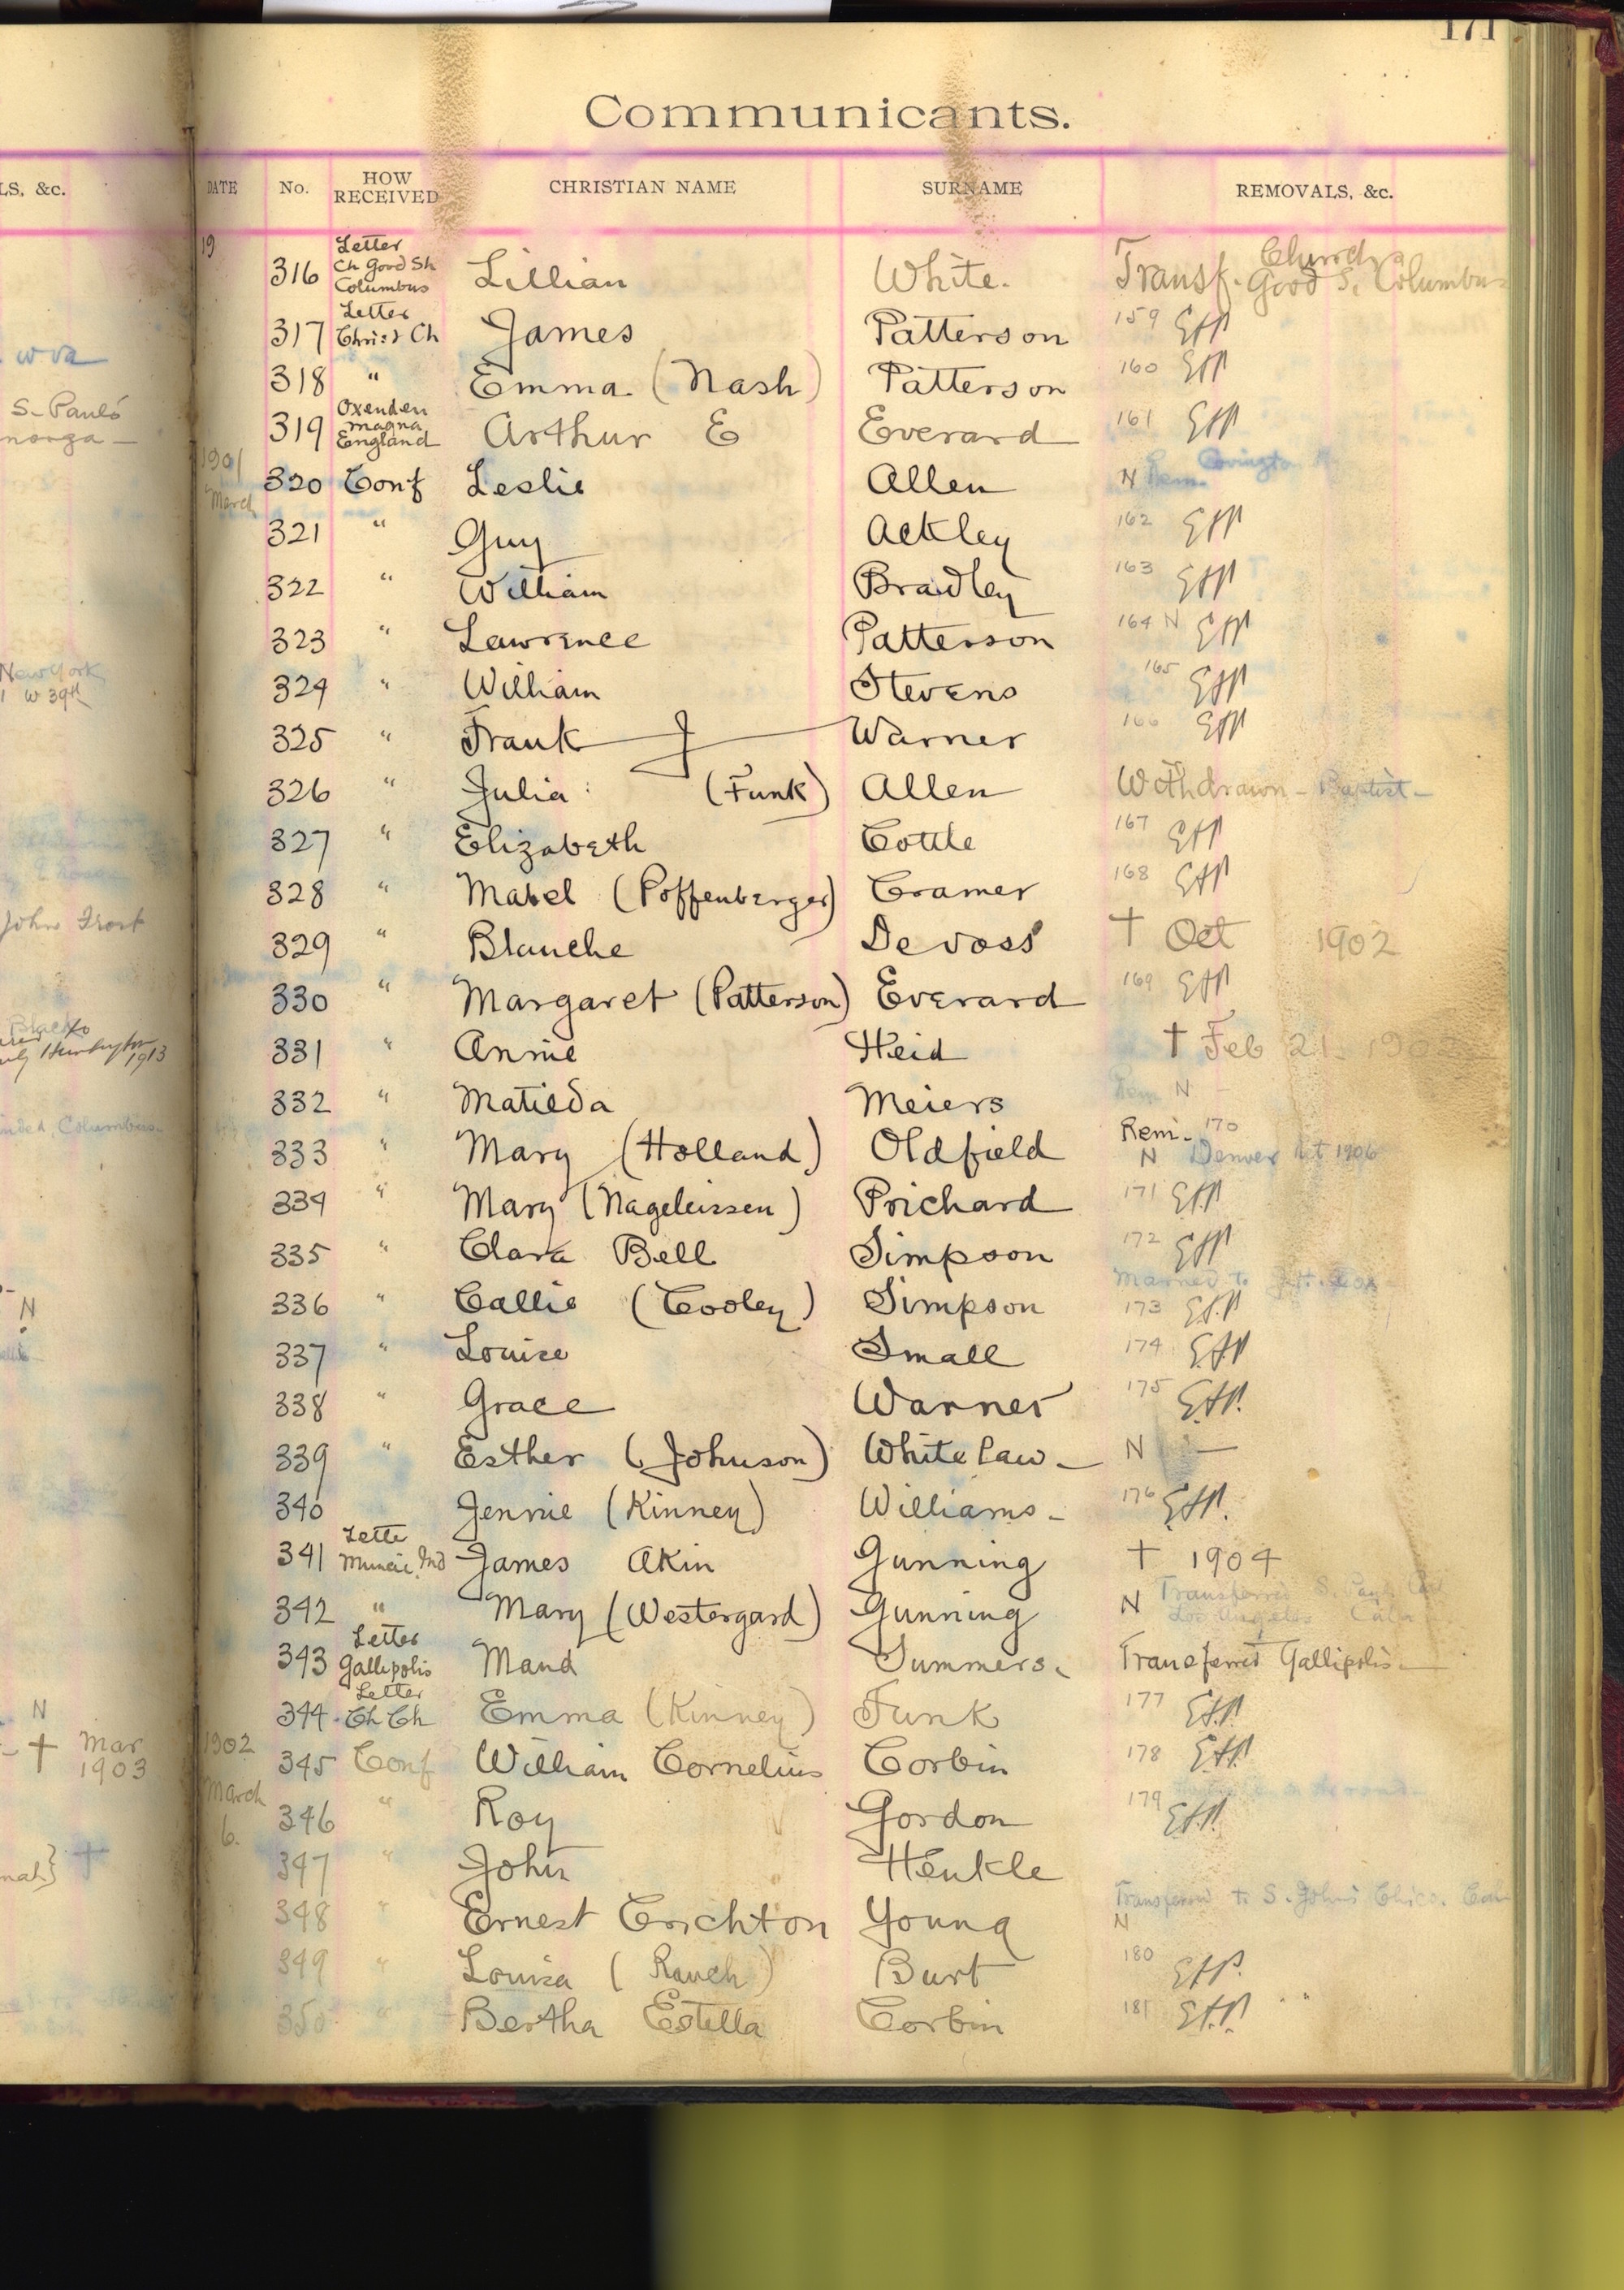 171
Communicants.
LS, &c. DATE No. HOW RECEIVED CHRISTIAN NAME SURNAME REMOVALS, &c.
19 316 Letter Ch Good Sh Columbus Lillian White. Transf. Church Good S. Columbus
317 Letter Christ Ch James Patterson 159
318 " Emma (Nash) Patterson 160
319 Oxenden Magna England Arthur E Everard 161
1901 March 320 Conf Leslie Allen N Rem. Covington
321 " Guy Ackley 162
322 " William Bradley 163
323 " Lawrence Patterson 164 N
324 " William Stevens 165
325 " Frank J Warner 166
326 " Julia (Funk) Allen Withdrawn - Baptist -
327 " Elizabeth Cottle 167
328 " Mabel (Poffenberger) Cramer 168
329 " Blanche Devoss † Oct 1902
330 " Margaret (Patterson) Everard 169
331 " Annie Heid † Feb 21
332 " Matilda Meiers Rem N -
333 " Mary (Holland) Oldfield Rem. 170 N Denver 1906
334 " Mary (Nageleissen) Prichard 171
335 " Clara Bell Simpson 172
336 " Callie (Cooley) Simpson Married to 173
337 " Louise Small 174
338 " Grace Warner 175
339 " Esther (Johnson) White Law - N -
340 Jennie (Kinney) Williams - 176
341 Lette Muncie, Ind James Akin Gunning † 1904
342 " Mary (Westergard) Gunning N Transferred S. Paul Los Angeles
343 Letter Gallipolis Maud Summers. Transferred Gallipolis -
344 Letter Ch Ch Emma (Kinney) Funk 177
1902 March 6. 345 Conf William Cornelius Corbin 178
346 " Roy Gordon 179
347 " John Henkle
348 " Ernest Crichton Young Transferred to S. John's Chico. Cal N
349 " Louisa (Rauch) Burt 180
350 " Bertha Estella Corbin 181
W Va
S- Paul's
New York
W 39th
John Frost
1913
Columbus.
N
N
† Mar
1903
†